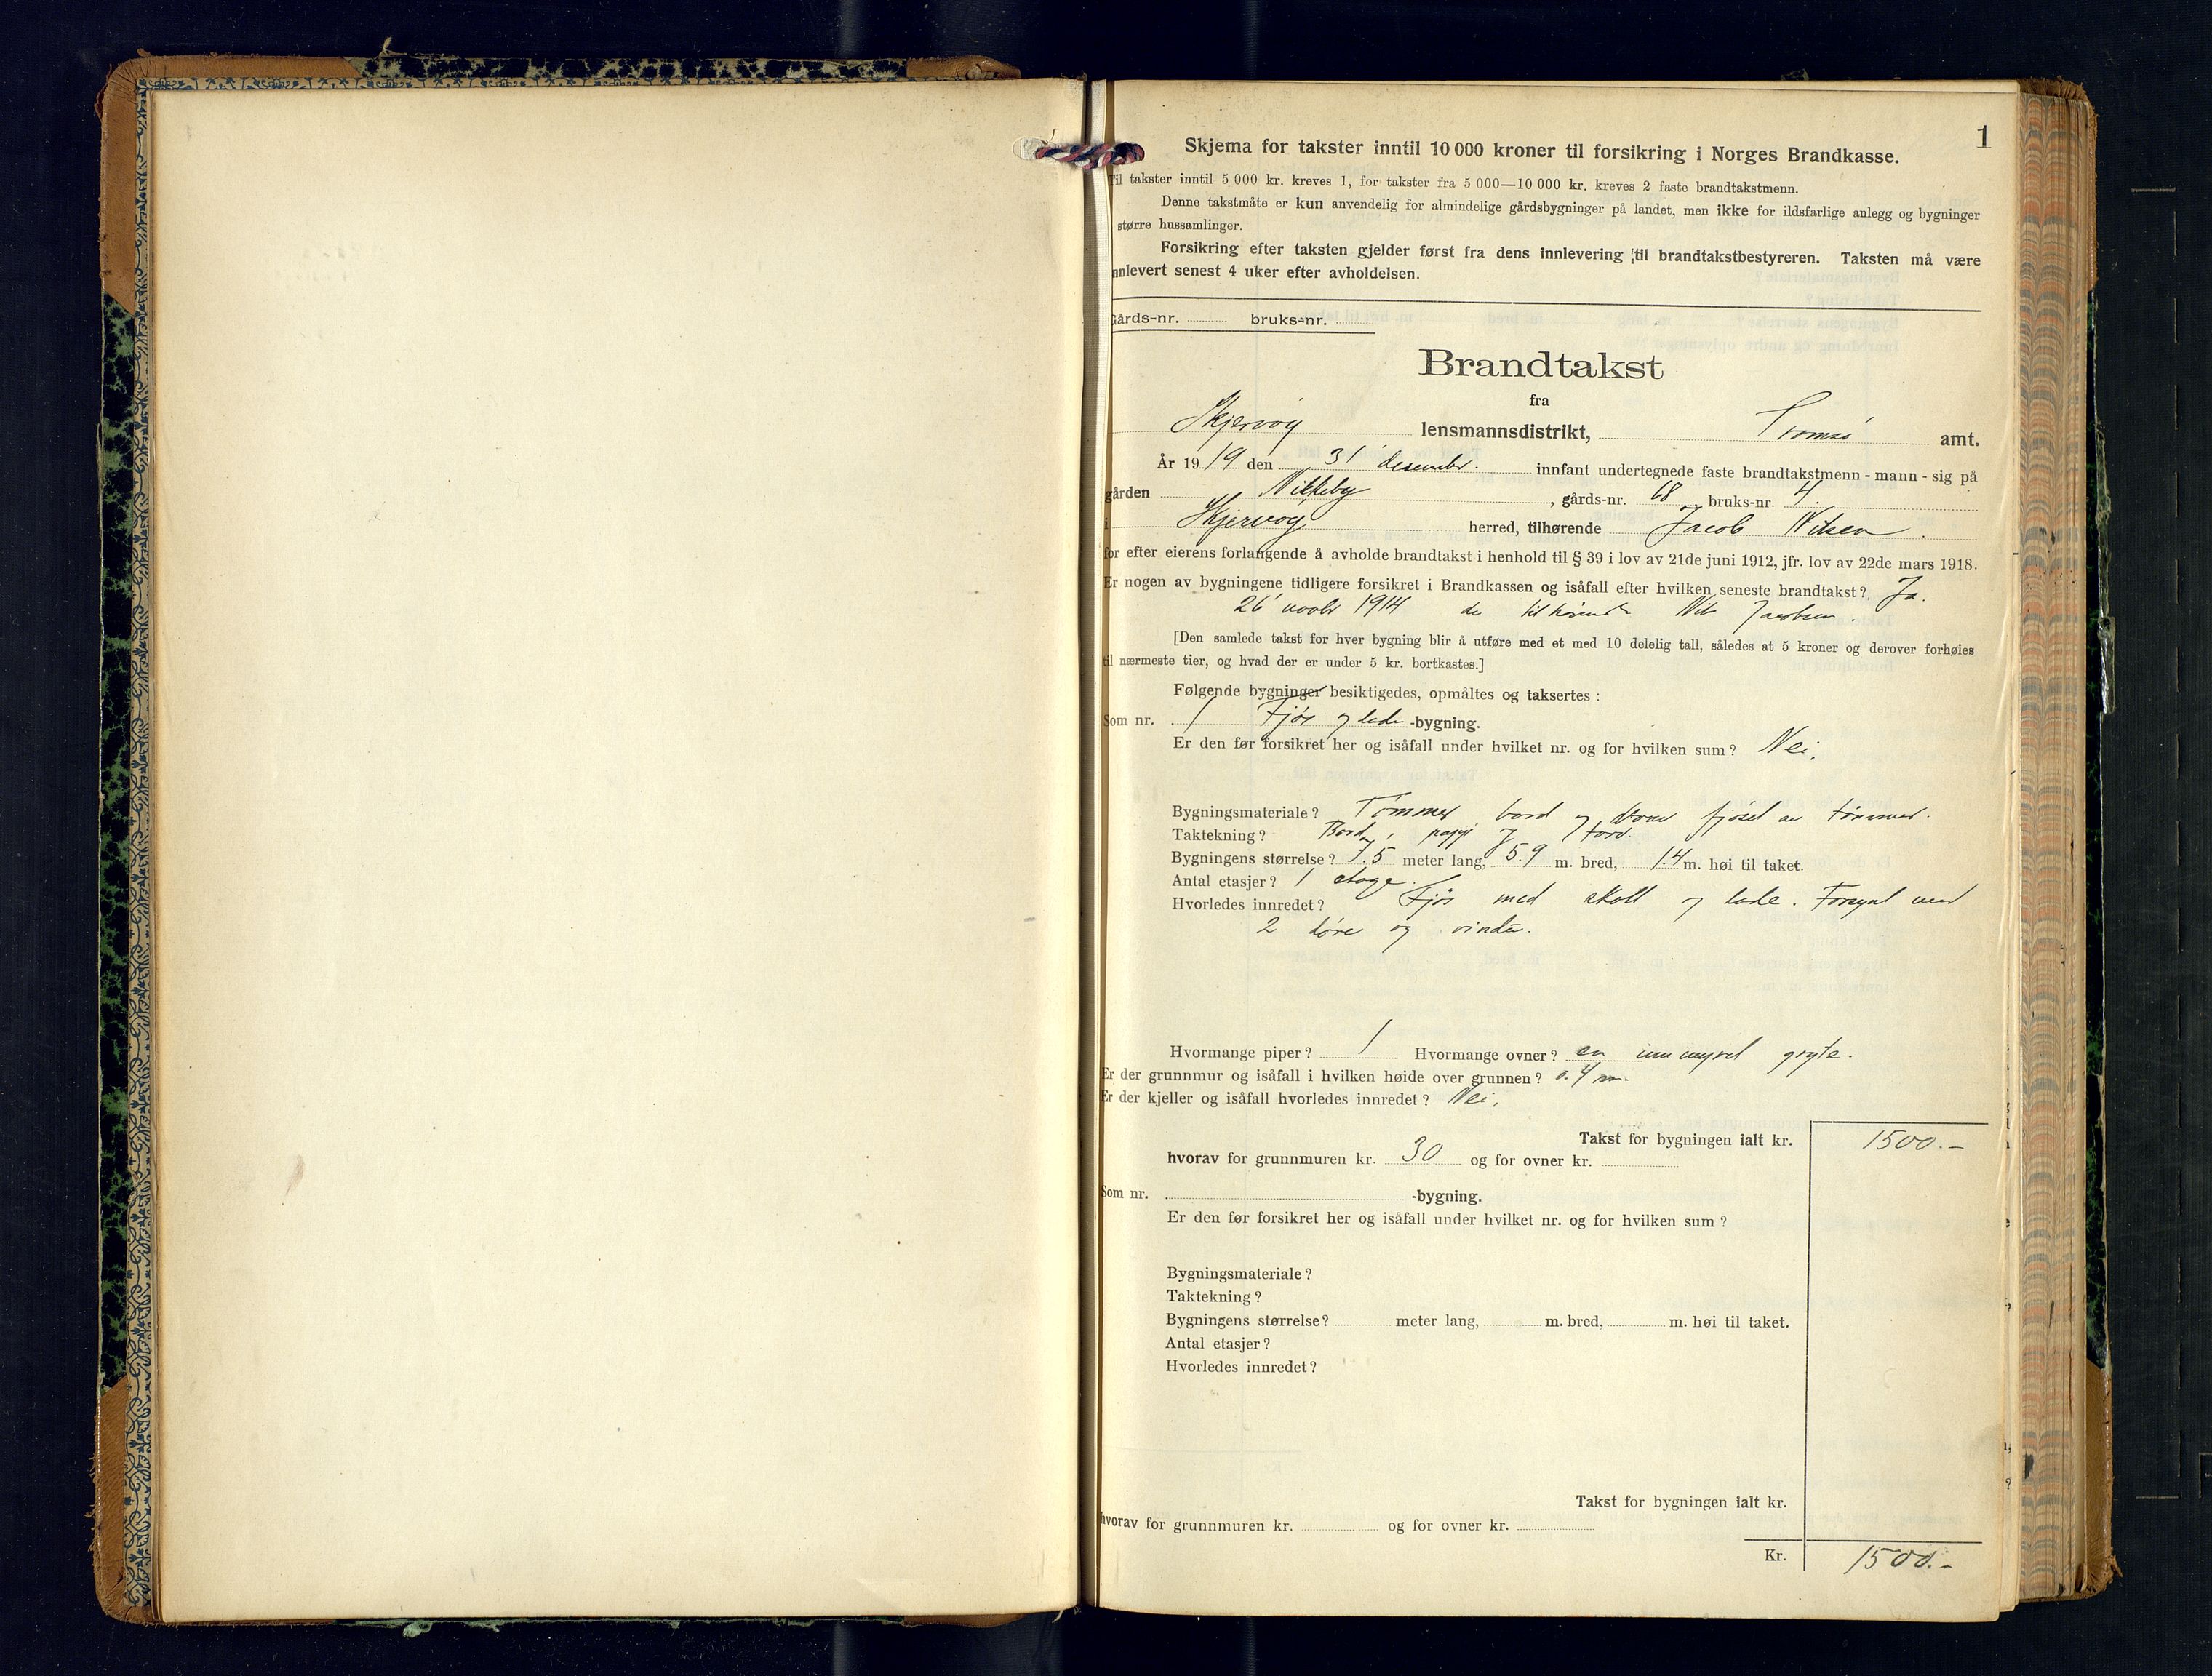 1
Skjema for takster inntil 10 000 kroner til forsikring i Norges Brandkasse.
Til takster inntil 5 000 kr. kreves 1, for takster fra 5 000—10 000 kr. kreves 2 faste brandtakstmenn.
Denne takstmåte er kun anvendelig for almindelige gårdsbygninger på landet, men ikke for ildsfarlige anlegg og bygninger
større hussamlinger.
Forsikring efter taksten gjelder først fra dens innlevering til brandtakstbestyreren. Taksten må være
innlevert senest 4 uker efter avholdelsen.
Gårds-nr. bruks-nr.
Brandtakst
fra
Skjervøy lensmannsdistrikt, Tromsø amt.
År 1919 den 31 desembr. innfant undertegnede faste brandtakstmenn - mann - sig på
gården Nikkeby, gårds-nr. 68 bruks-nr. 4
i Skjervøy herred, tilhørende Jacob Nilsen.
for efter eierens forlangende å avholde brandtakst i henhold til § 39 i lov av 21de juni 1912, jfr. lov av 22de mars 1918.
Er nogen av bygningene tidligere forsikret i Brandkassen og isåfall efter hvilken seneste brandtakst? Ja.
26 novbr 1914 da tilhørende Nils Jacobsen.
[Den samlede takst for hver bygning blir å utføre med et med 10 delelig tall, således at 5 kroner og derover forhøies
til nærmeste tier, og hvad der er under 5 kr. bortkastes.]
Følgende bygninger besiktigedes, opmåltes og taksertes :
Som nr. 1 Fjøs og lade -bygning.
Er den før forsikret her og isåfall under hvilket nr. og for hvilken sum? Nei.
Bygningsmateriale? Tømmer, bord og fjøset av tømmer.
Taktekning? Bord, papp og torv.
Bygningens størrelse? 7.5 meter lang, 5.9 m. bred, 1.4 m. høi til taket.
Antal etasjer? 1 etage.
Hvorledes innredet? Fjøs med skott og lade. Forsynt med
2 døre og vindu.
Hvormange piper? 1 Hvormange ovner? en innmuret gryte.
Er der grunnmur og isåfall i hvilken høide over grunnen? 0.4 m.
Er der kjeller og isåfall hvorledes innredet? Nei.
Takst for bygningen ialt kr. 1500.-
hvorav for grunnmuren kr. 30 og for ovner kr.
Som nr. -bygning.
Er den før forsikret her og isåfall under hvilket nr. og for hvilken sum?
Bygningsmateriale?
Taktekning?
Bygningens størrelse? meter lang, m. bred, m. høi til taket.
Antal etasjer?
Hvorledes innredet?
Takst for bygningen ialt kr.
hvorav for grunnmuren kr. og for ovner kr.
Kr. 1500.-